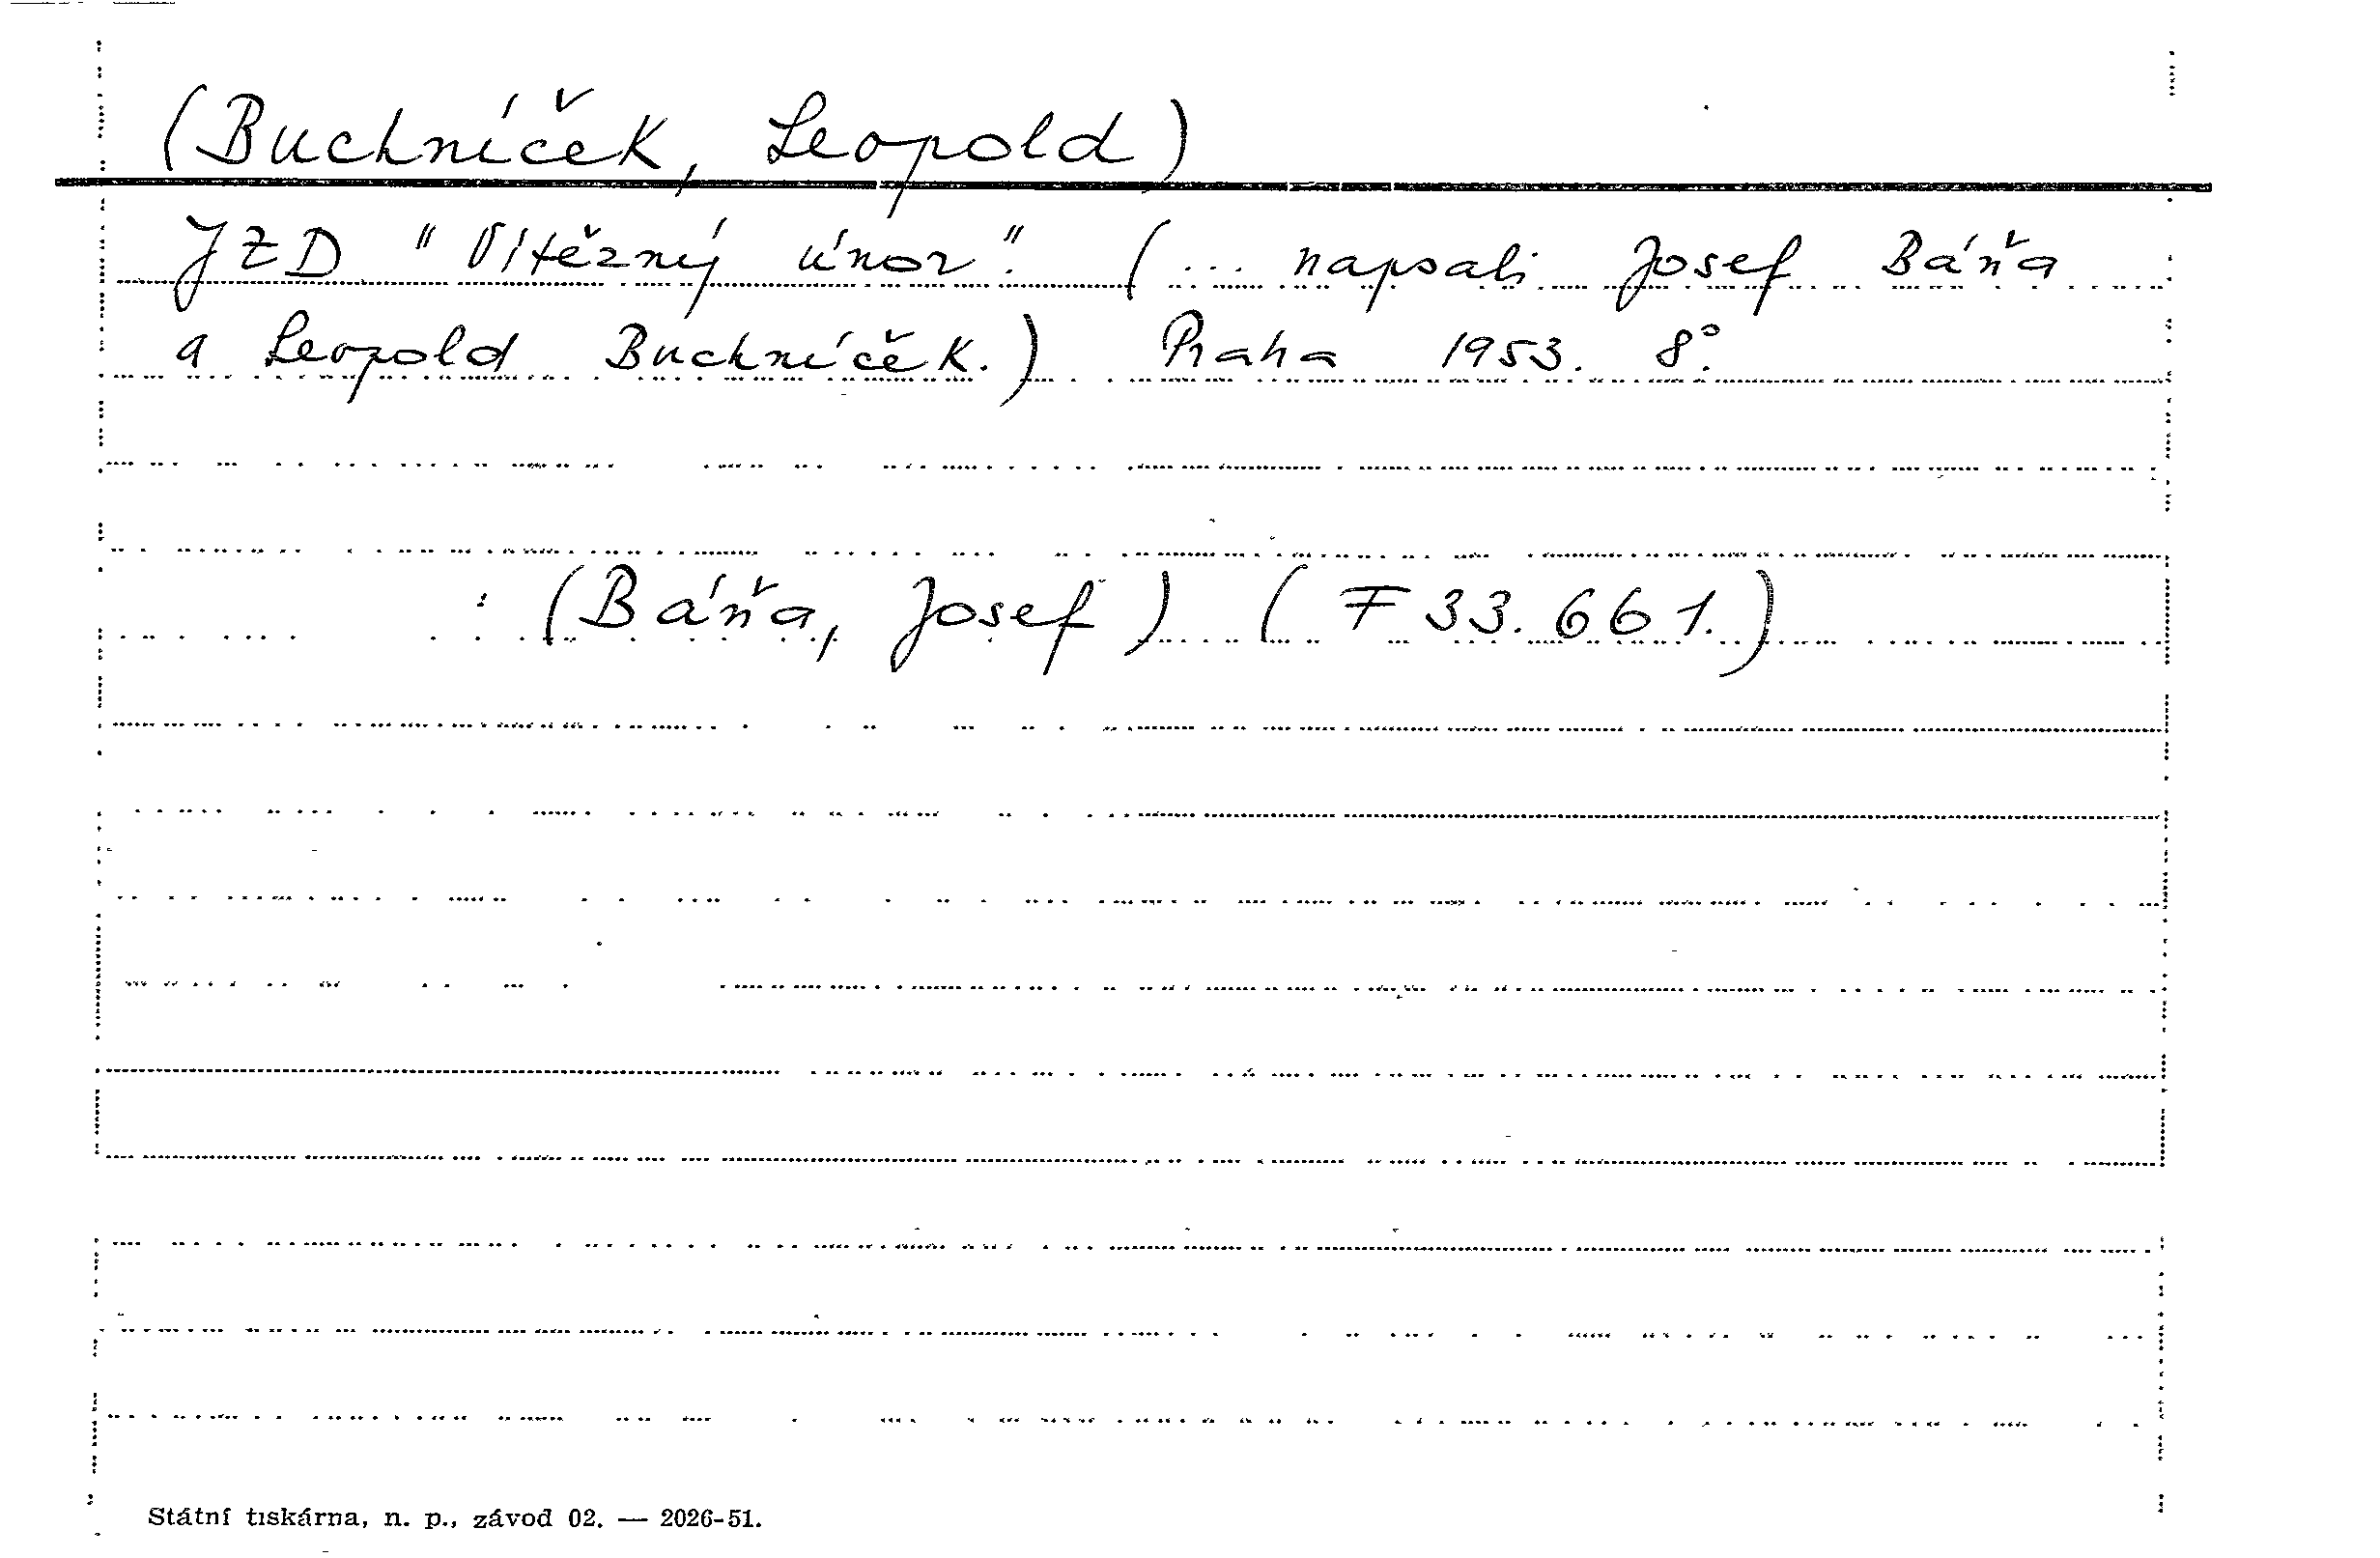 (Buchníček, Leopold)
JZD "Vítězný únor". (... napsali Josef Báňa
a Leopold Buchníček.) Praha 1953. 8°.
: (Báňa, Josef) (F 33.661.)
Státní tiskárna, n. p., závod 02. — 2026-51.